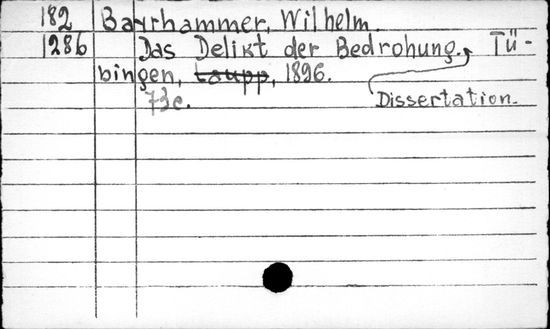 182 Bayrhammer, Wilhelm.
1286 Das Delikt der Bedrohung. Tü-
bingen, Laupp, 1896.
73c. Dissertation.